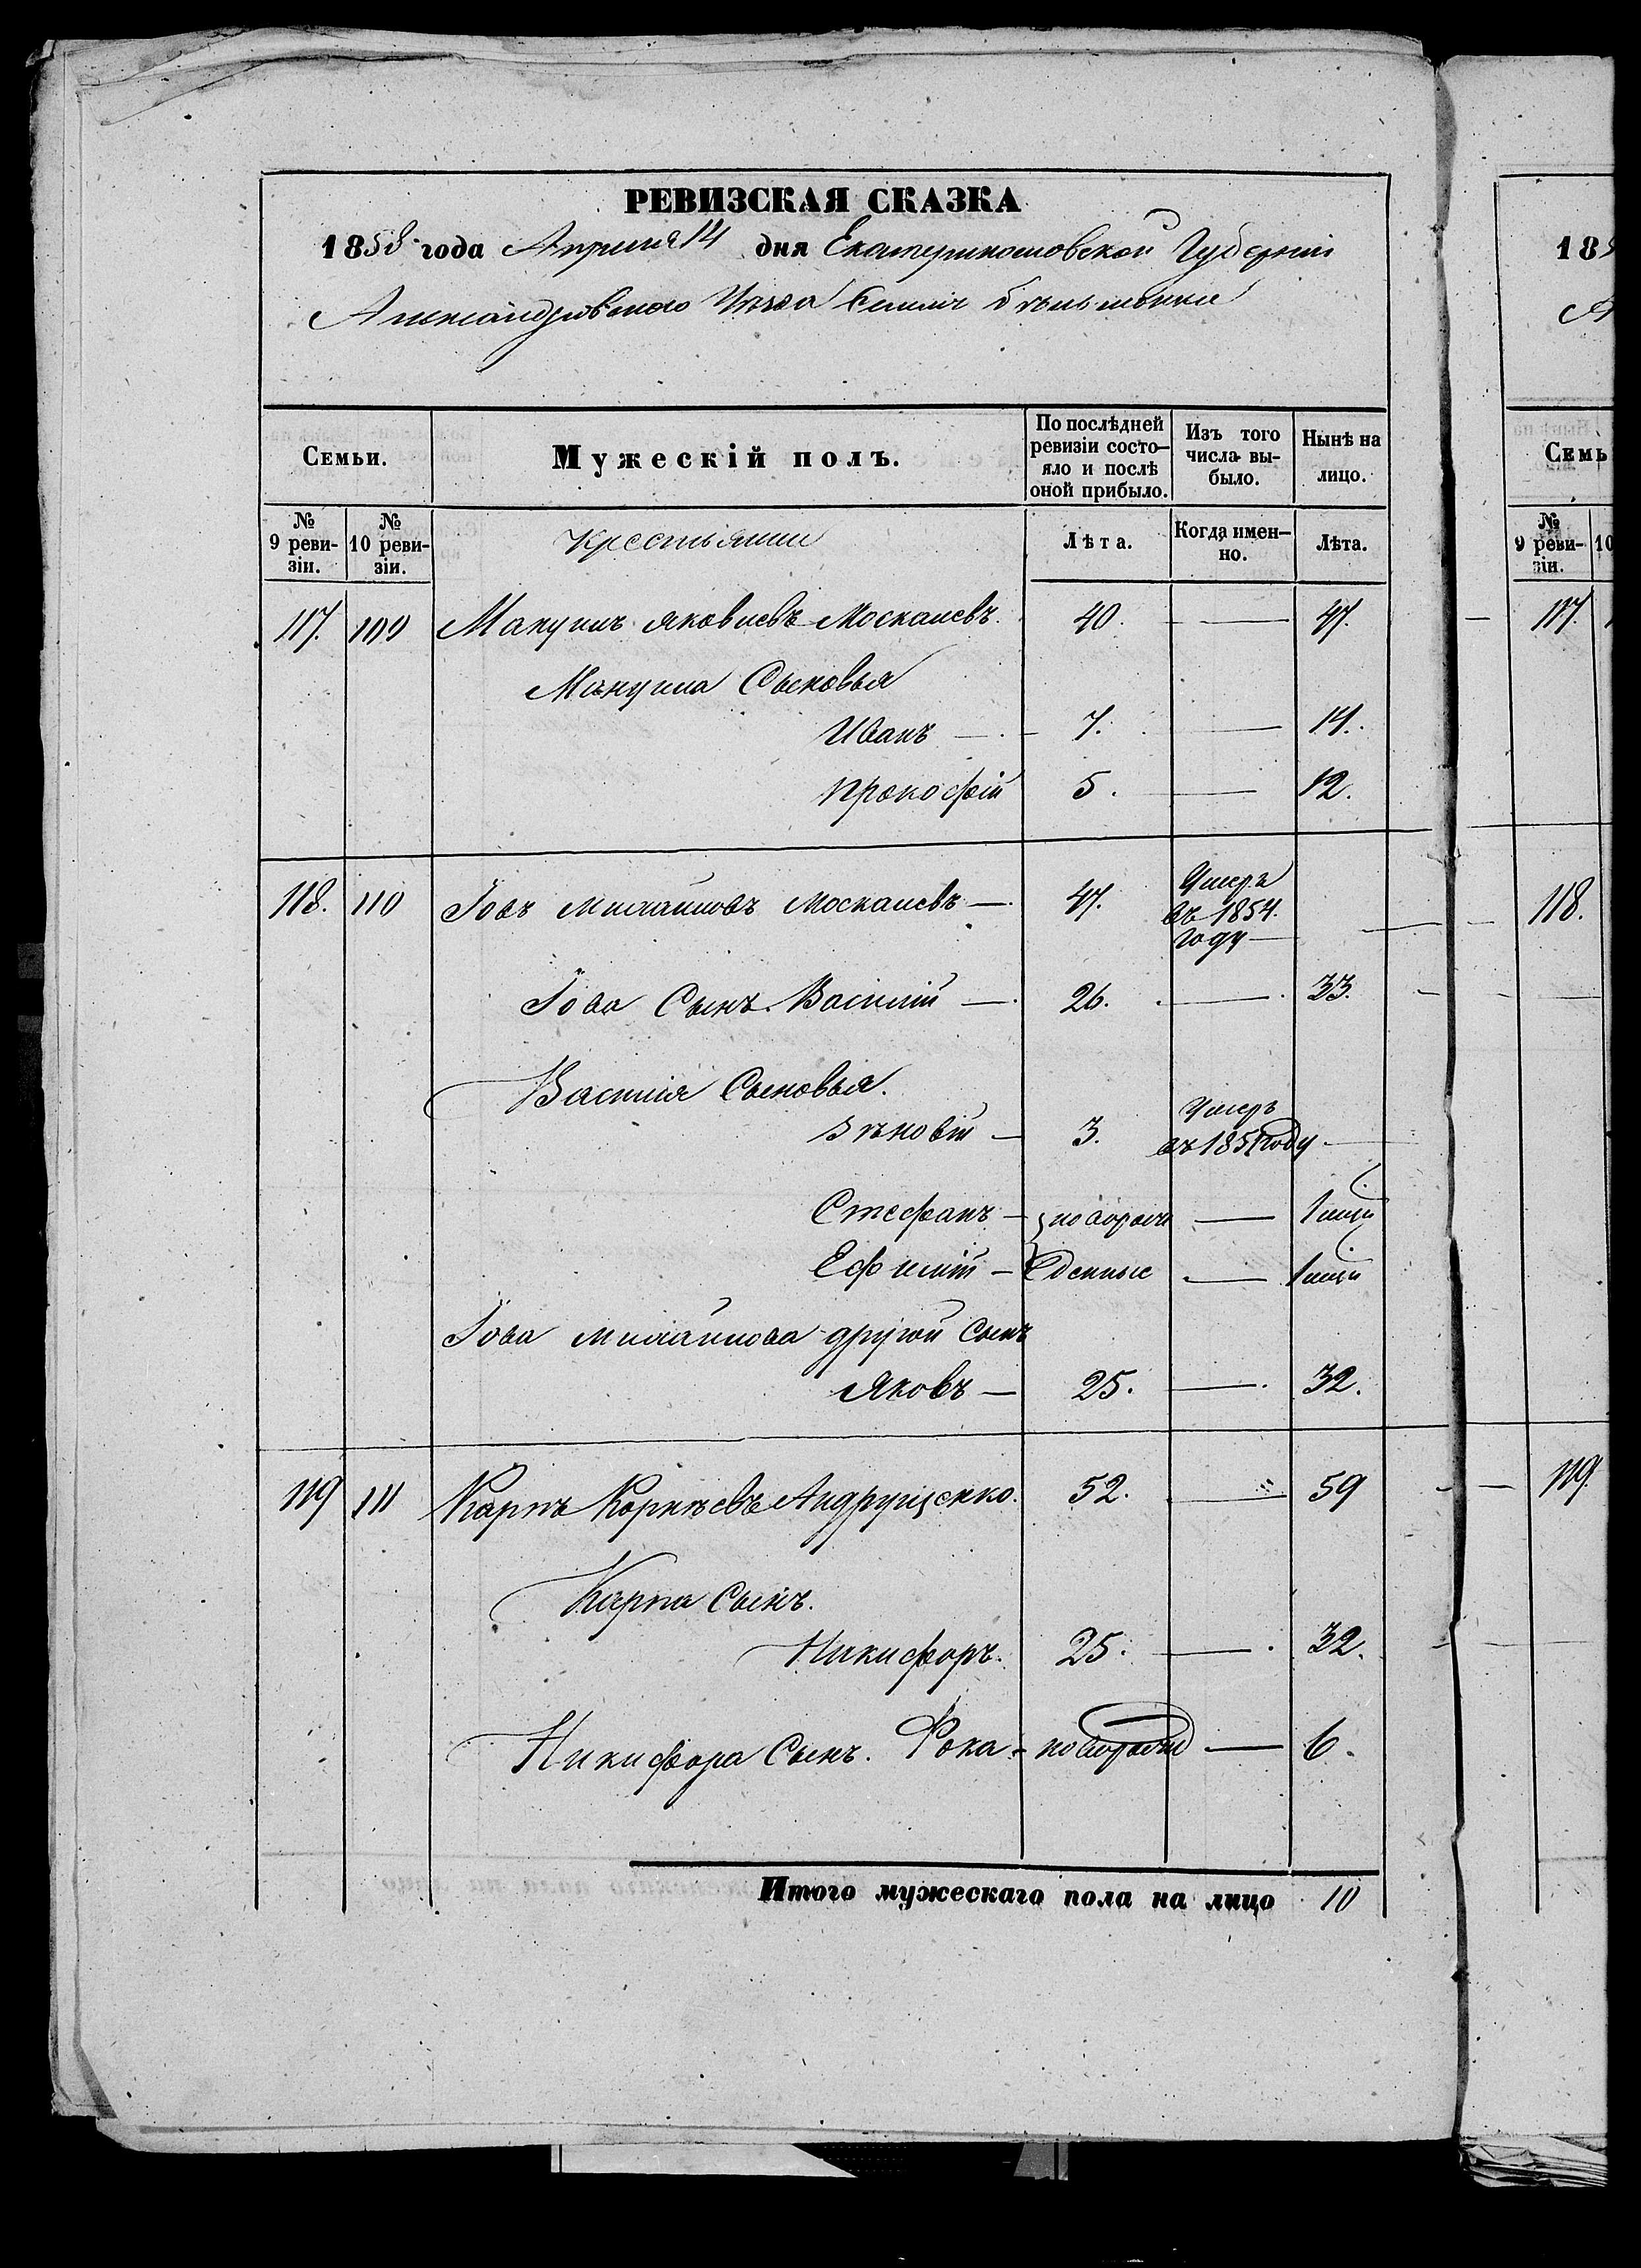 РЕВИЗСКАЯ СКАЗКА
1858 года Апреля 14 дня Екатеринославской Губерніи
Александровскаго Уезда Селенія Бѣльманки
Семьи.
Мужескій полъ.
По послѣдней ревизіи состо-
яло и послѣ
оной прибыло.
Изъ того
числа вы-
было.
Нынѣ на
лицо.
№
9 реви-
зіи.
№
10 реви-
зіи.
Крестьяние
Лѣта.
Когда имен-
но.
Лѣта.
117. 109 Мануилъ Яковлевъ Москалевъ. 40. — 47.
Мануила Сыновья
Иванъ — 7. — 14.
Прокофій 5. — 12.
118. 110 Іовъ Михайловъ Москалевъ — 47. Умеръ
въ 1854.
году —
Іова Сынъ Василій — 26. — 33.
Василія Сыновья.
Зѣновій — 3. Умеръ
въ 1851 году —
Стефанъ — новорож — 1
Ефимій — денные — 1
Іова Михайлова другой Сынъ
Яковъ — 25. — 32.
119 111 Карпъ Корнѣевъ Андрущенко. 52. — 59
Карпа Сынъ.
Никифоръ. 25. — 32.
Никифора Сынъ. Фока — новорожд — 6.
Итого мужескаго пола на лицо 10
185
А
Семь
№
9 реви-
зіи.
10
117.
118.
119.